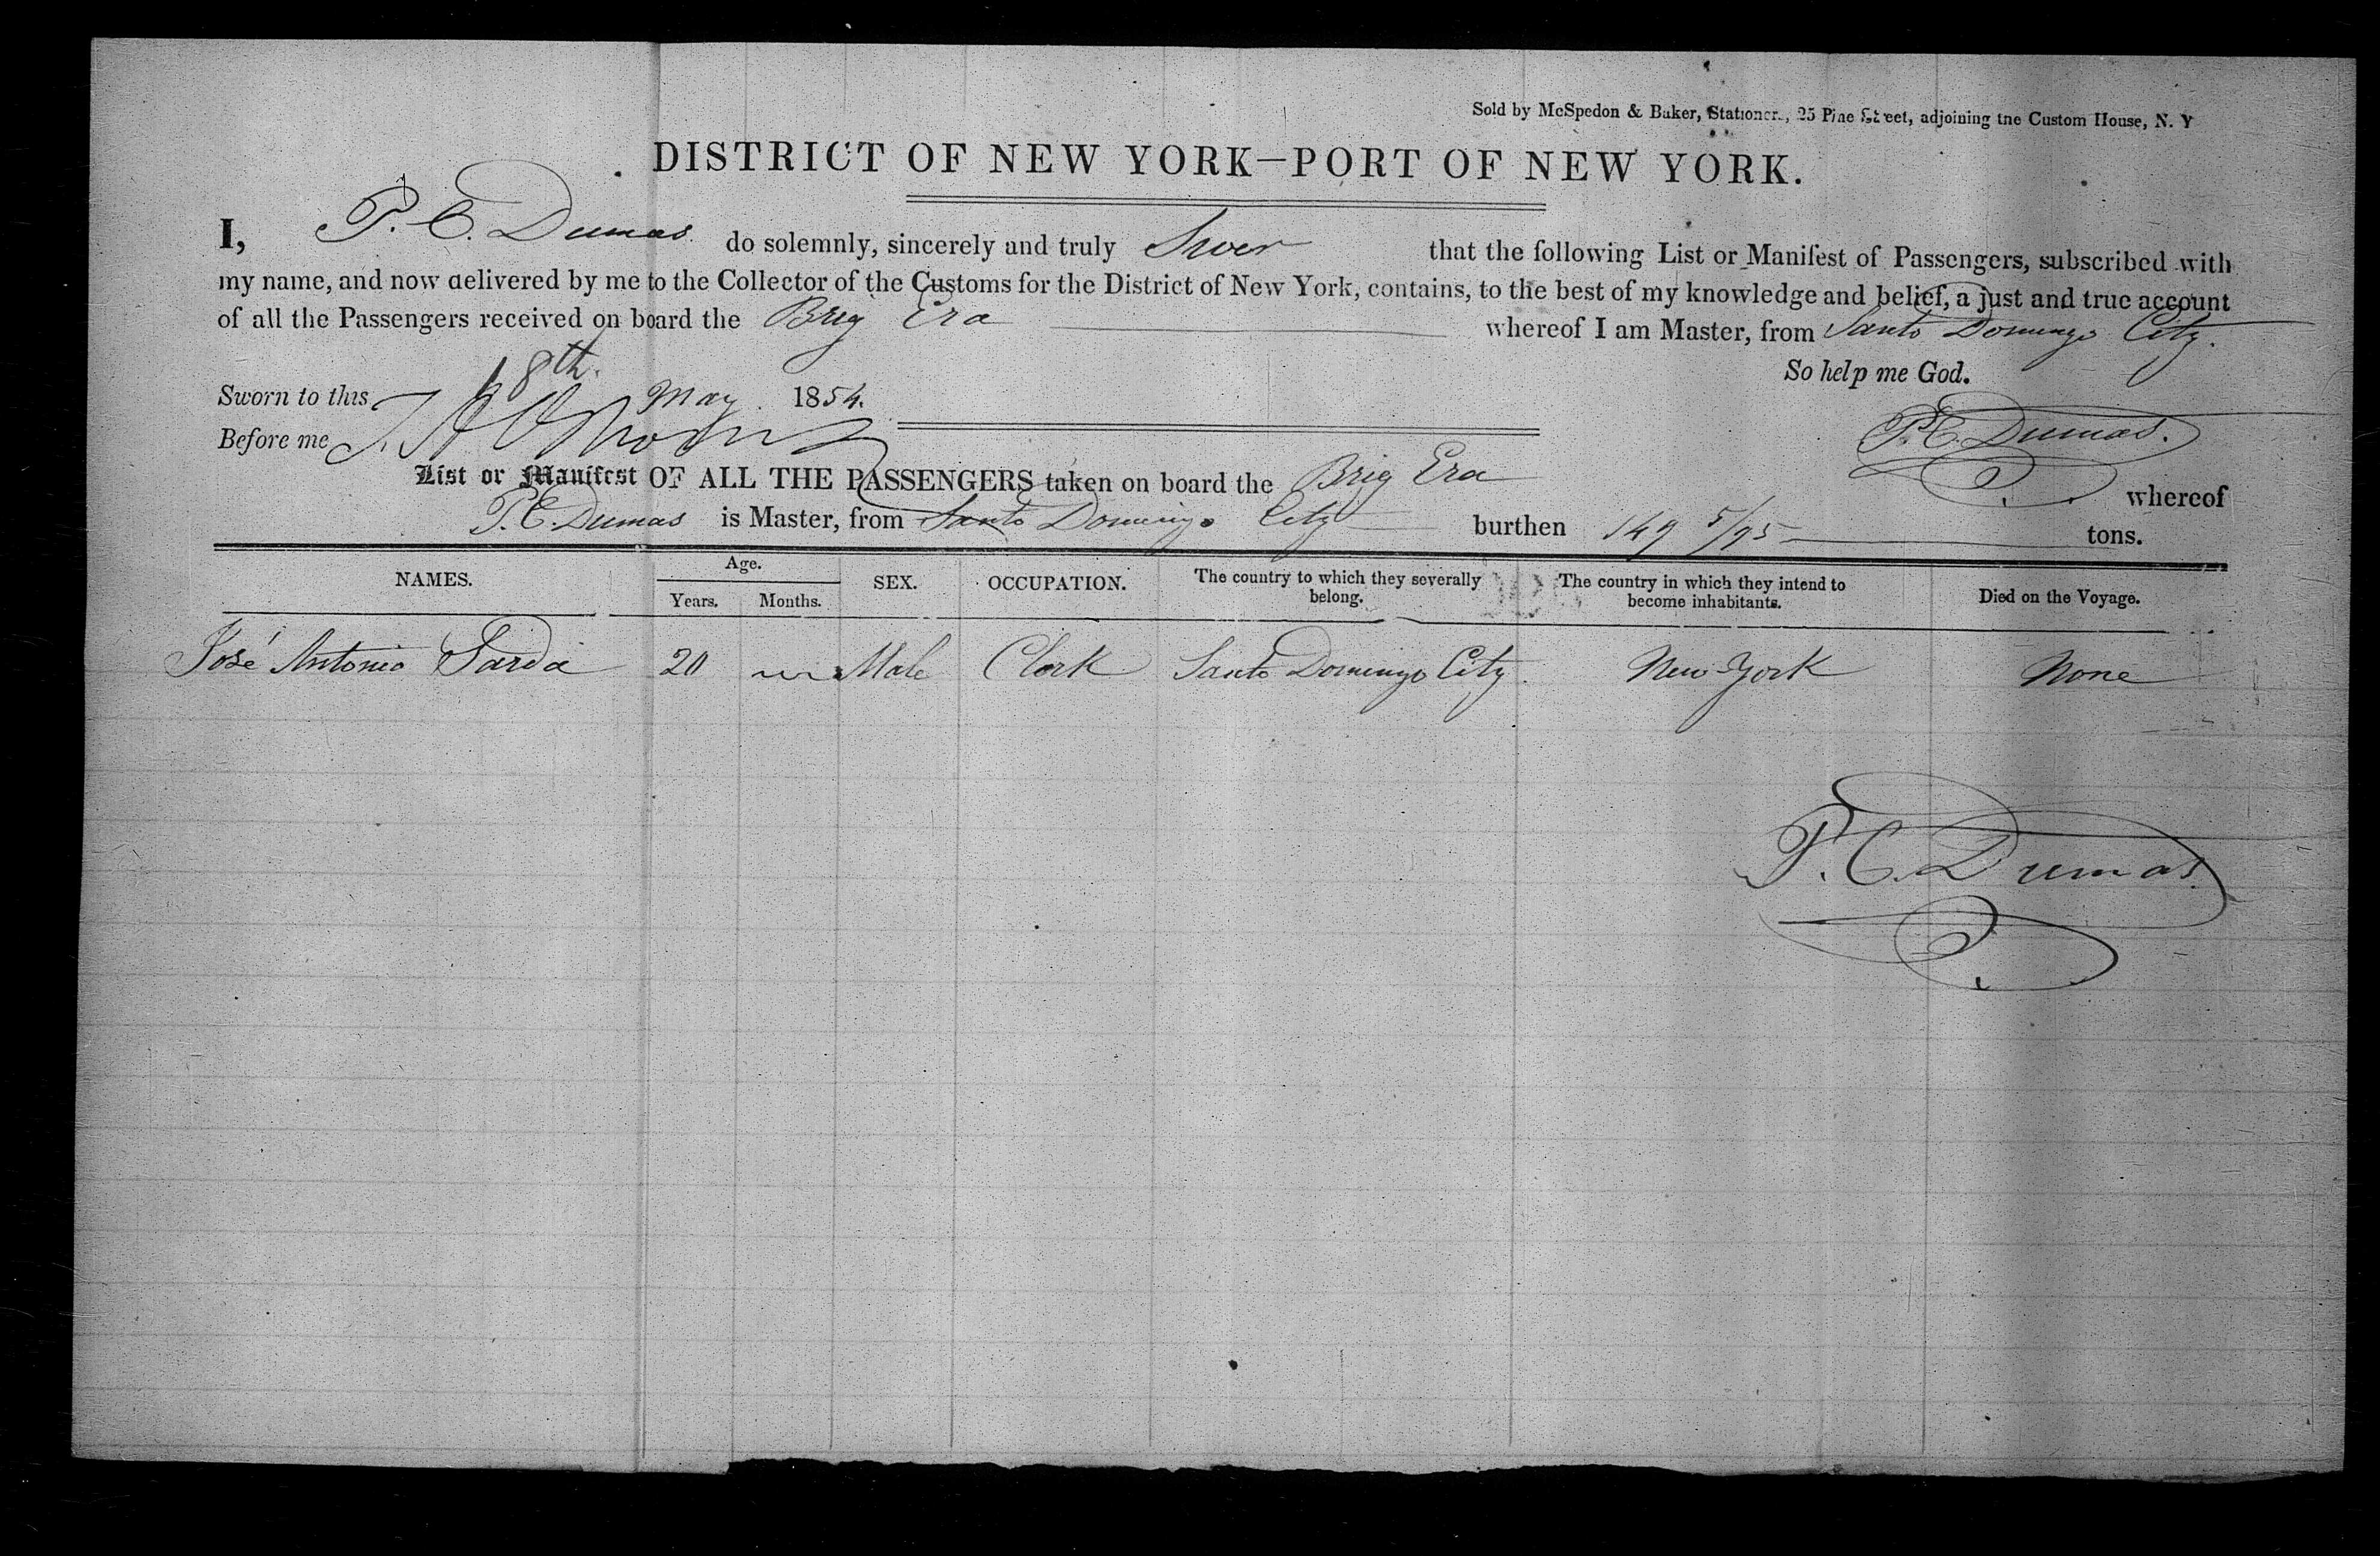 Sold by McSpedon & Baker, Stationer., 25 Pine Street, adjoining tne Custom House, N. Y
DISTRICT OF NEW YORK—PORT OF NEW YORK.
I, P. E. Dumas do solemnly, sincerely and truly Swer that the following List or Manifest of Passengers, subscribed with
my name, and now delivered by me to the Collector of the Customs for the District of New York, contains, to the best of my knowledge and belief, a just and true account
of all the Passengers received on board the Brig Era whereof I am Master, from Santo Domingo City.
So help me God.
Sworn to this 18th. May 1854.
P. E. Dumas.
Before me
List or Manifest OF ALL THE PASSENGERS taken on board the Brig Era whereof
P. E. Dumas is Master, from Santo Domingo City burthen 149 5/95 tons.
NAMES. Age. Years. Months. SEX. OCCUPATION. The country to which they severally belong. The country in which they intend to become inhabitants. Died on the Voyage.
José Antonio Sardá 20 Male Clerk Santo Domingo City. New York None
P. E. Dumas.